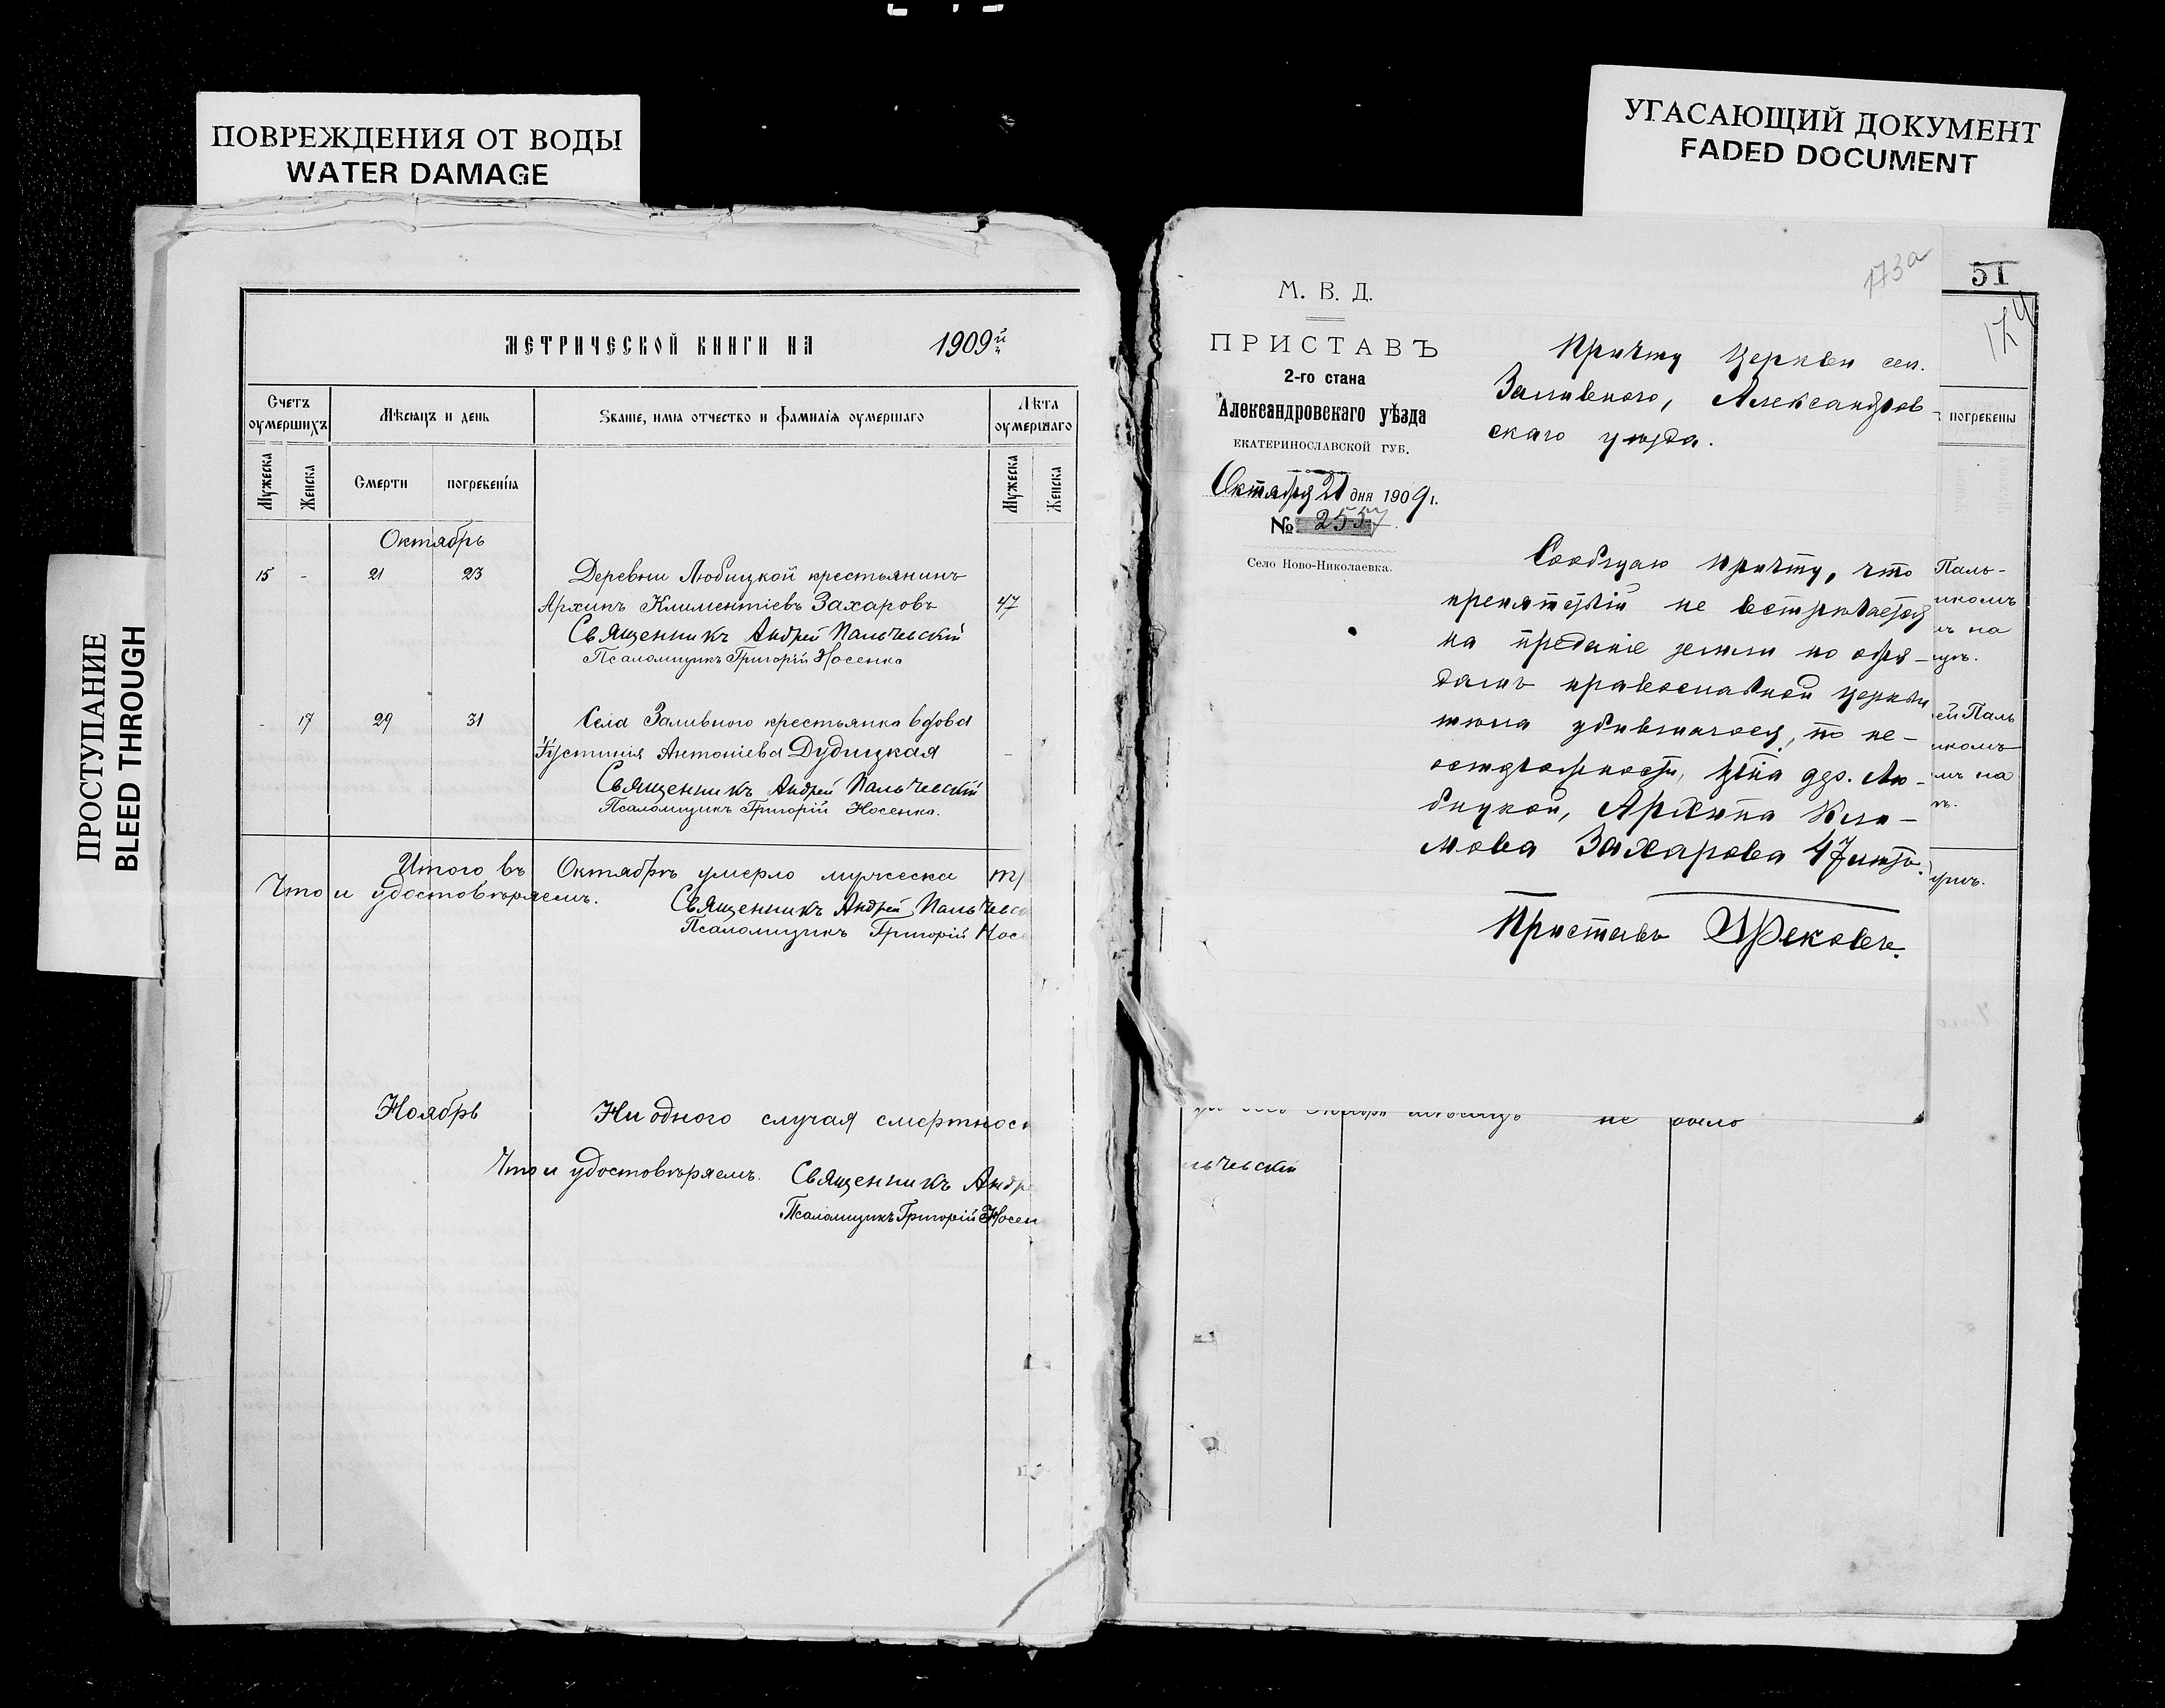 ПОВРЕЖДЕНИЯ ОТ ВОДЫ
WATER DAMAGE
УГАСАЮЩИЙ ДОКУМЕНТ
FADED DOCUMENT
ПРОСТУПАНИЕ
BLEED THROUGH
МЕТРИЧЕСКОЙ КНИГИ НА 1909й
Счетъ оумершихъ
Мѣсяцъ и день
Званіе, имѧ отчество и фамилія оумершаго
Лѣта оумершаго
Мужеска
Женска
Смерти
погребеніѧ
Мужеска
Женска
Октябрь
15 - 21 23 Деревни Любицкой крестьянинъ
Архипъ Климентіевъ Захаровъ 47
Священникъ Андрей Пальчевскій
Псаломщикъ Григорій Носенко
- 17 29 31 Села Заливного крестьянка вдова
Іустинія Антоніева Дудицкая -
Священникъ Андрей Пальчевскій
Псаломщикъ Григорій Носенко.
Итого въ Октябрѣ умерло мужеска
Что и удостовѣряемъ.
Священникъ Андрей Пальчевс
Псаломщикъ Григорій Носе
Ноябрь Ни одного случая смертнос
Что и удостовѣряемъ. Священникъ Андре
Псаломщикъ Григорій Носен
173а
М. В. Д.
ПРИСТАВЪ
2-го стана
Александровскаго уѣзда
ЕКАТЕРИНОСЛАВСКОЙ ГУБ.
Октября 21 дня 1909 г.
№ 2557
Село Ново-Николаевка.
Причту церкви сел.
Заливного, Александров-
скаго уѣзда.
Сообщаю причту, что
препятствій не встрѣчается
на преданіе земли по обря-
дамъ православной церкви
тѣла убившагося, по не-
осторожности, кр-на дер. Лю-
бицкой, Архипа Кли-
мова Захарова 47 лѣтъ.
Приставъ
51
174
погребены
Паль-
икомъ
мъ на
ей Паль
икомъ
мъ на
не было
льчевскій